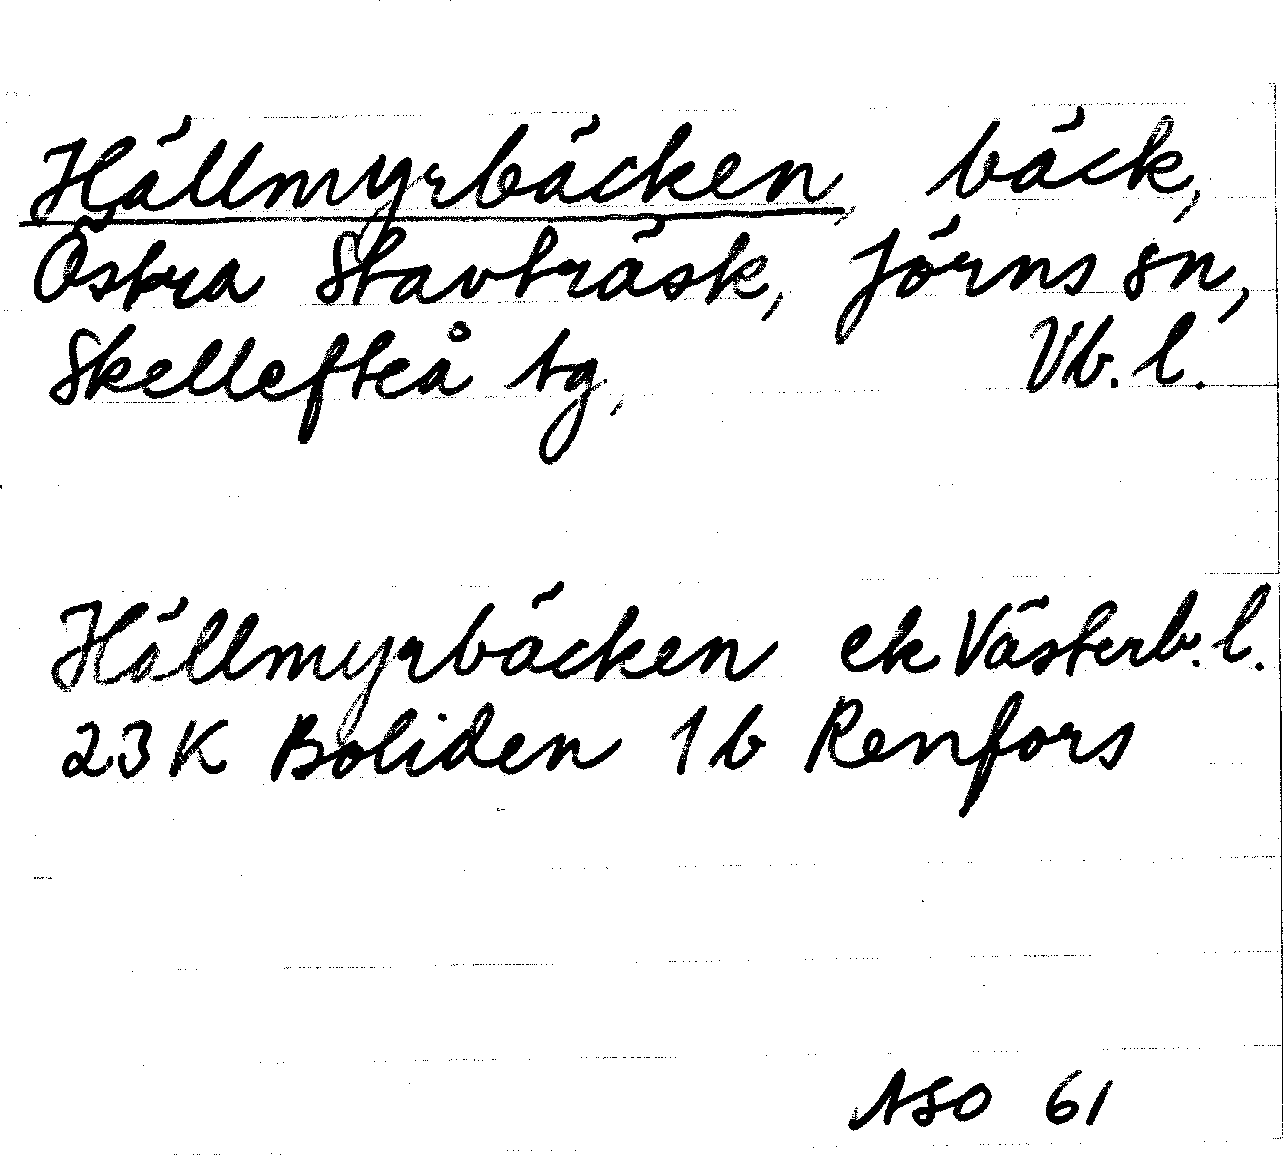 Hällmyrbäcken, bäck,
Östra Stavträsk, Jörns sn,
Skellefteå tg, Vb. l.
Hällmyrbäcken ek Västerb. l.
23 K Boliden 1 b Renfors
ASO 61